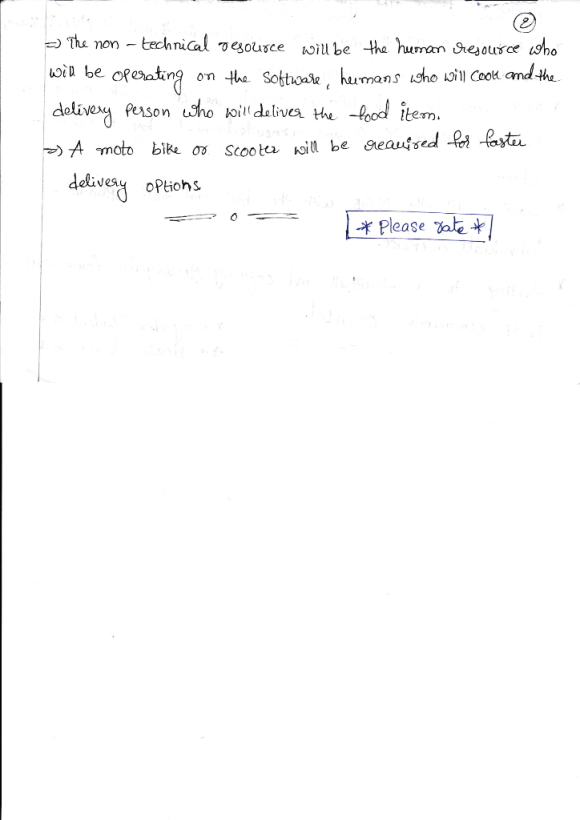 ②
⇒ The non-technical resource will be the human resource who
will be operating on the software, humans who will cook and the
delivery person who will deliver the food item.
⇒ A moto bike or scooter will be required for faster
delivery options
* Please rate *